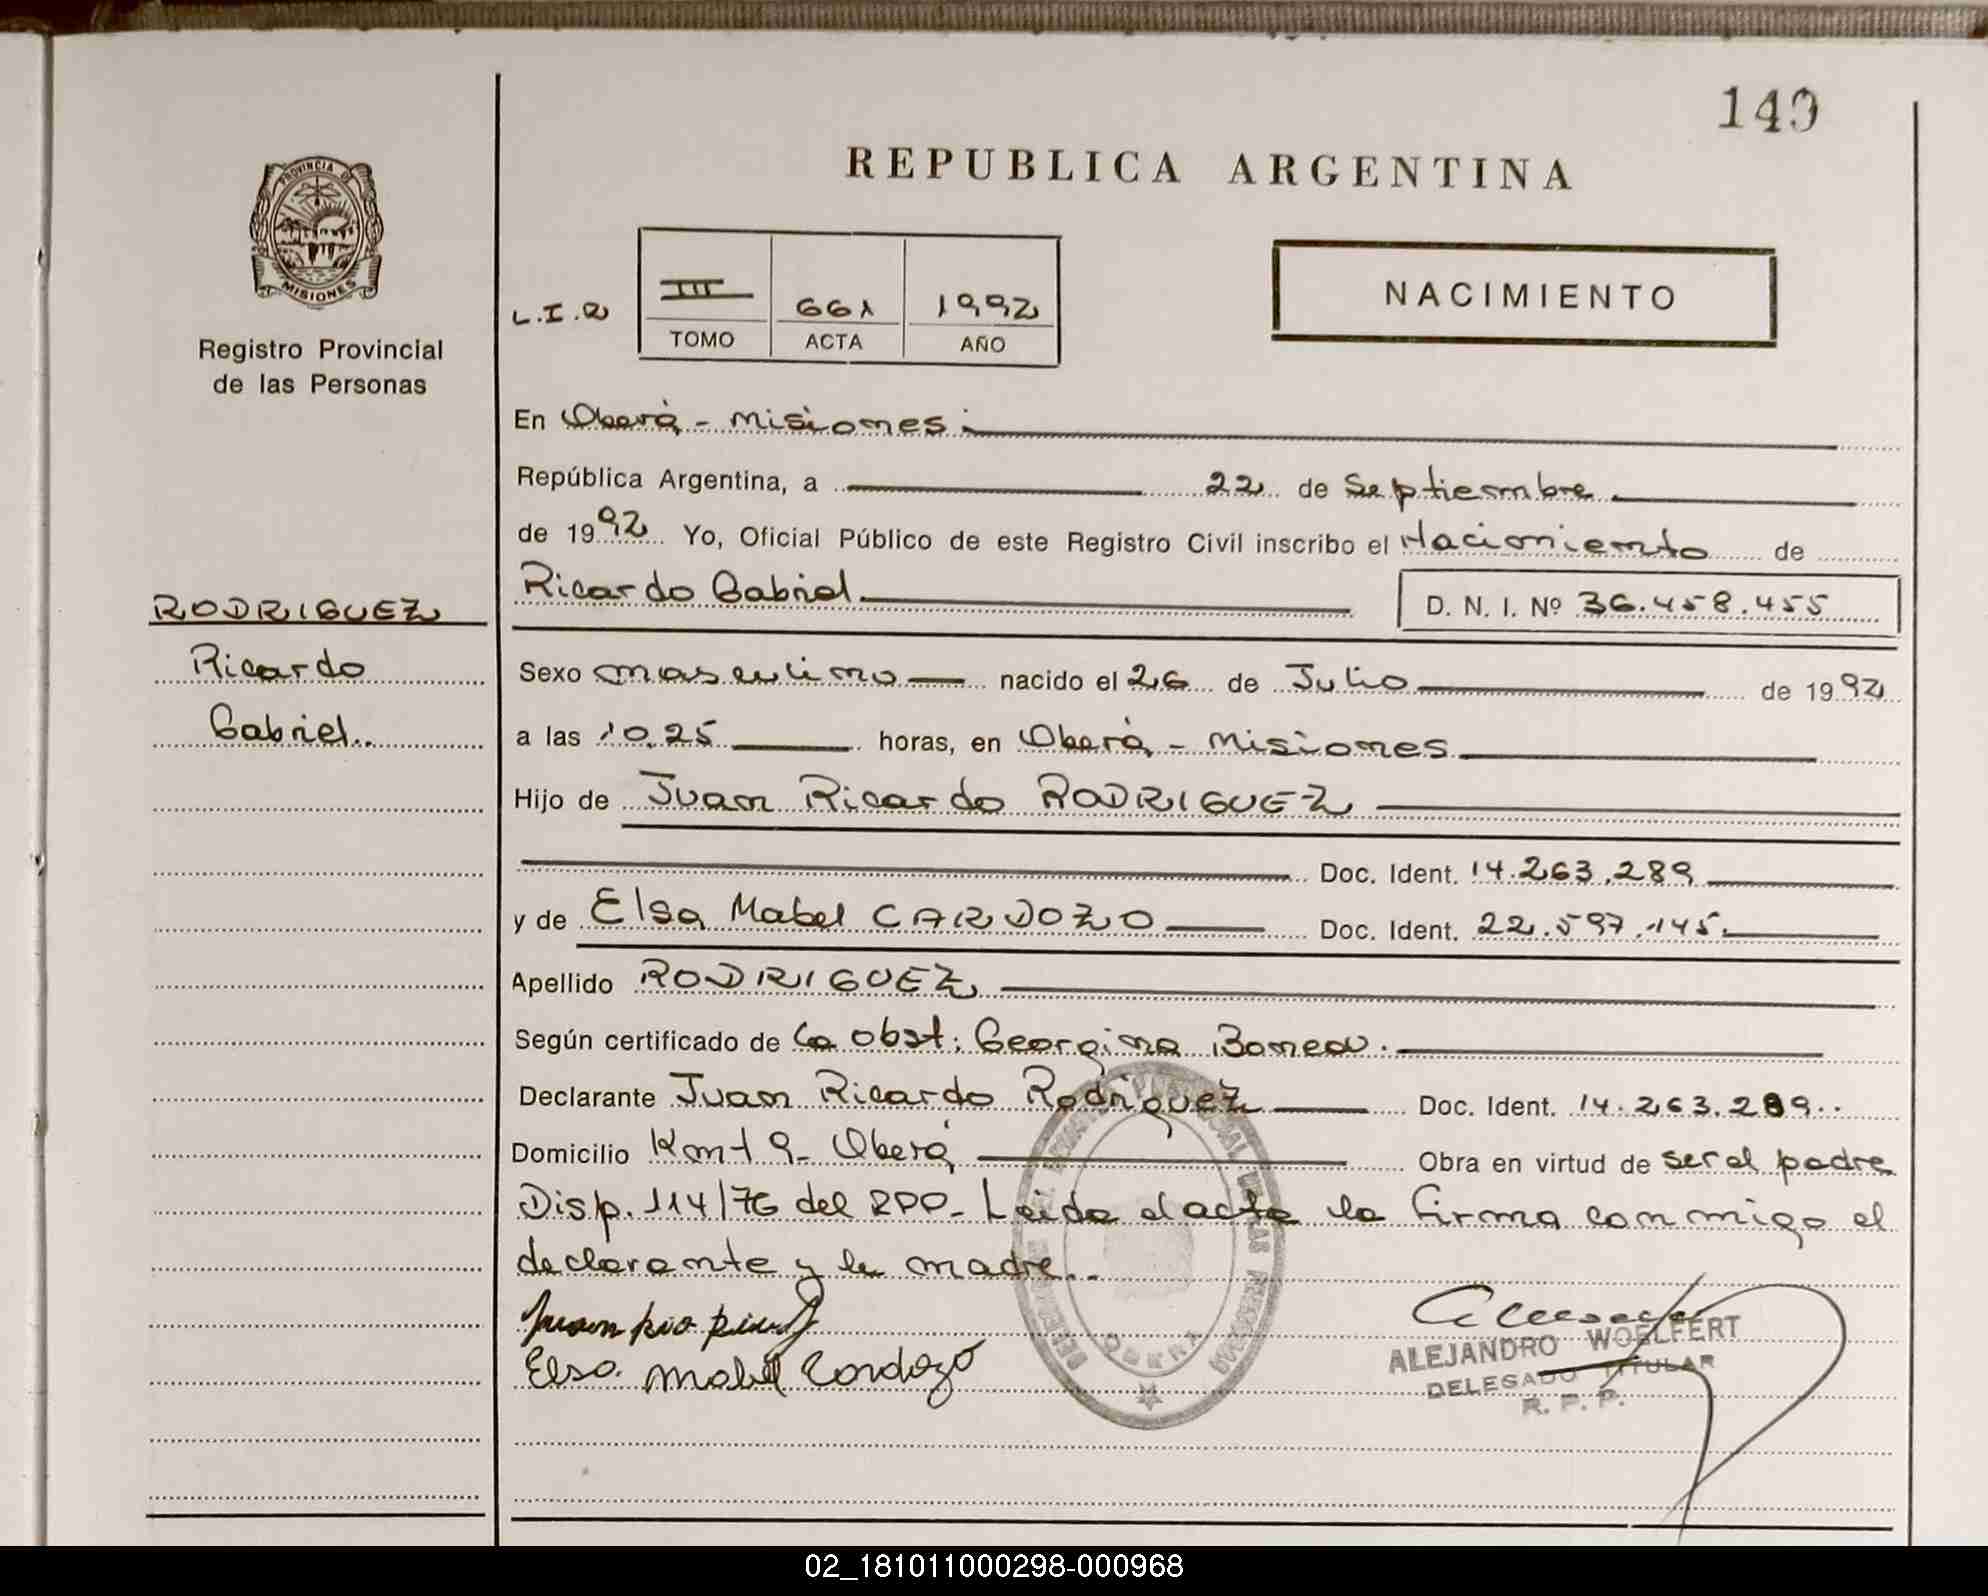 149
REPUBLICA ARGENTINA
PROVINCIA DE
MISIONES
Registro Provincial
de las Personas
L.I.R
III 661 1992
TOMO ACTA AÑO
NACIMIENTO
En Oberá - Misiones
República Argentina, a 22 de Septiembre
de 1992 Yo, Oficial Público de este Registro Civil inscribo el Nacimiento de
Ricardo Gabriel D. N. I. Nº 36.458.455
RODRIGUEZ
Ricardo
Gabriel..
Sexo masculino nacido el 26 de Julio de 1992
a las 10.25 horas, en Oberá - Misiones
Hijo de Juan Ricardo RODRIGUEZ
Doc. Ident. 14.263.289
y de Elsa Mabel CARDOZO Doc. Ident. 22.597.145.
Apellido RODRIGUEZ
Según certificado de la obst: Georgina
Declarante Juan Ricardo Rodriguez Doc. Ident. 14.263.289..
Domicilio Km 1 9 - Oberá Obra en virtud de ser el padre
Disp. 114/76 del RPP - Leida el acta la firma conmigo el
declarante y la madre..
Elsa Mabel Cardozo
ALEJANDRO WOELFERT
DELEGADO TITULAR
R. P. P.
OBERA
02_181011000298-000968